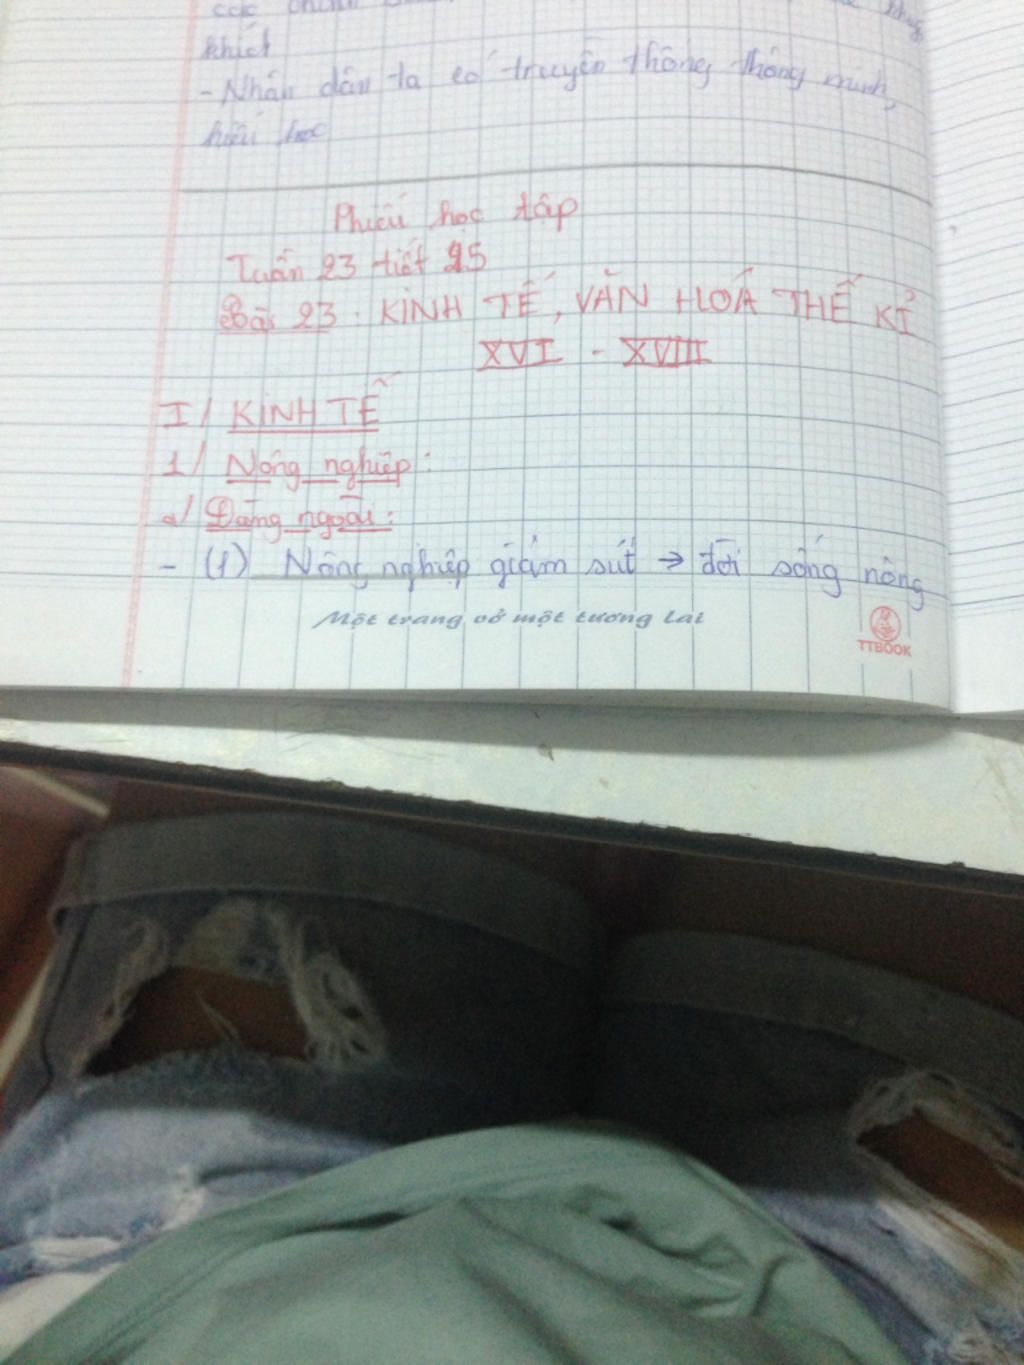 các
khích
- Nhân dân ta có truyền thống thông minh,
hiếu học
Phiếu học tập
Tuần 23 tiết 25
Bài 23: KINH TẾ, VĂN HOÁ THẾ KỈ
XVI - XVIII
I/ KINH TẾ
1/ Nông nghiệp:
a/ Đàng ngoài:
- (1) Nông nghiệp giảm sút → đời sống nông
Một trang vở một tương lai
TTBOOK